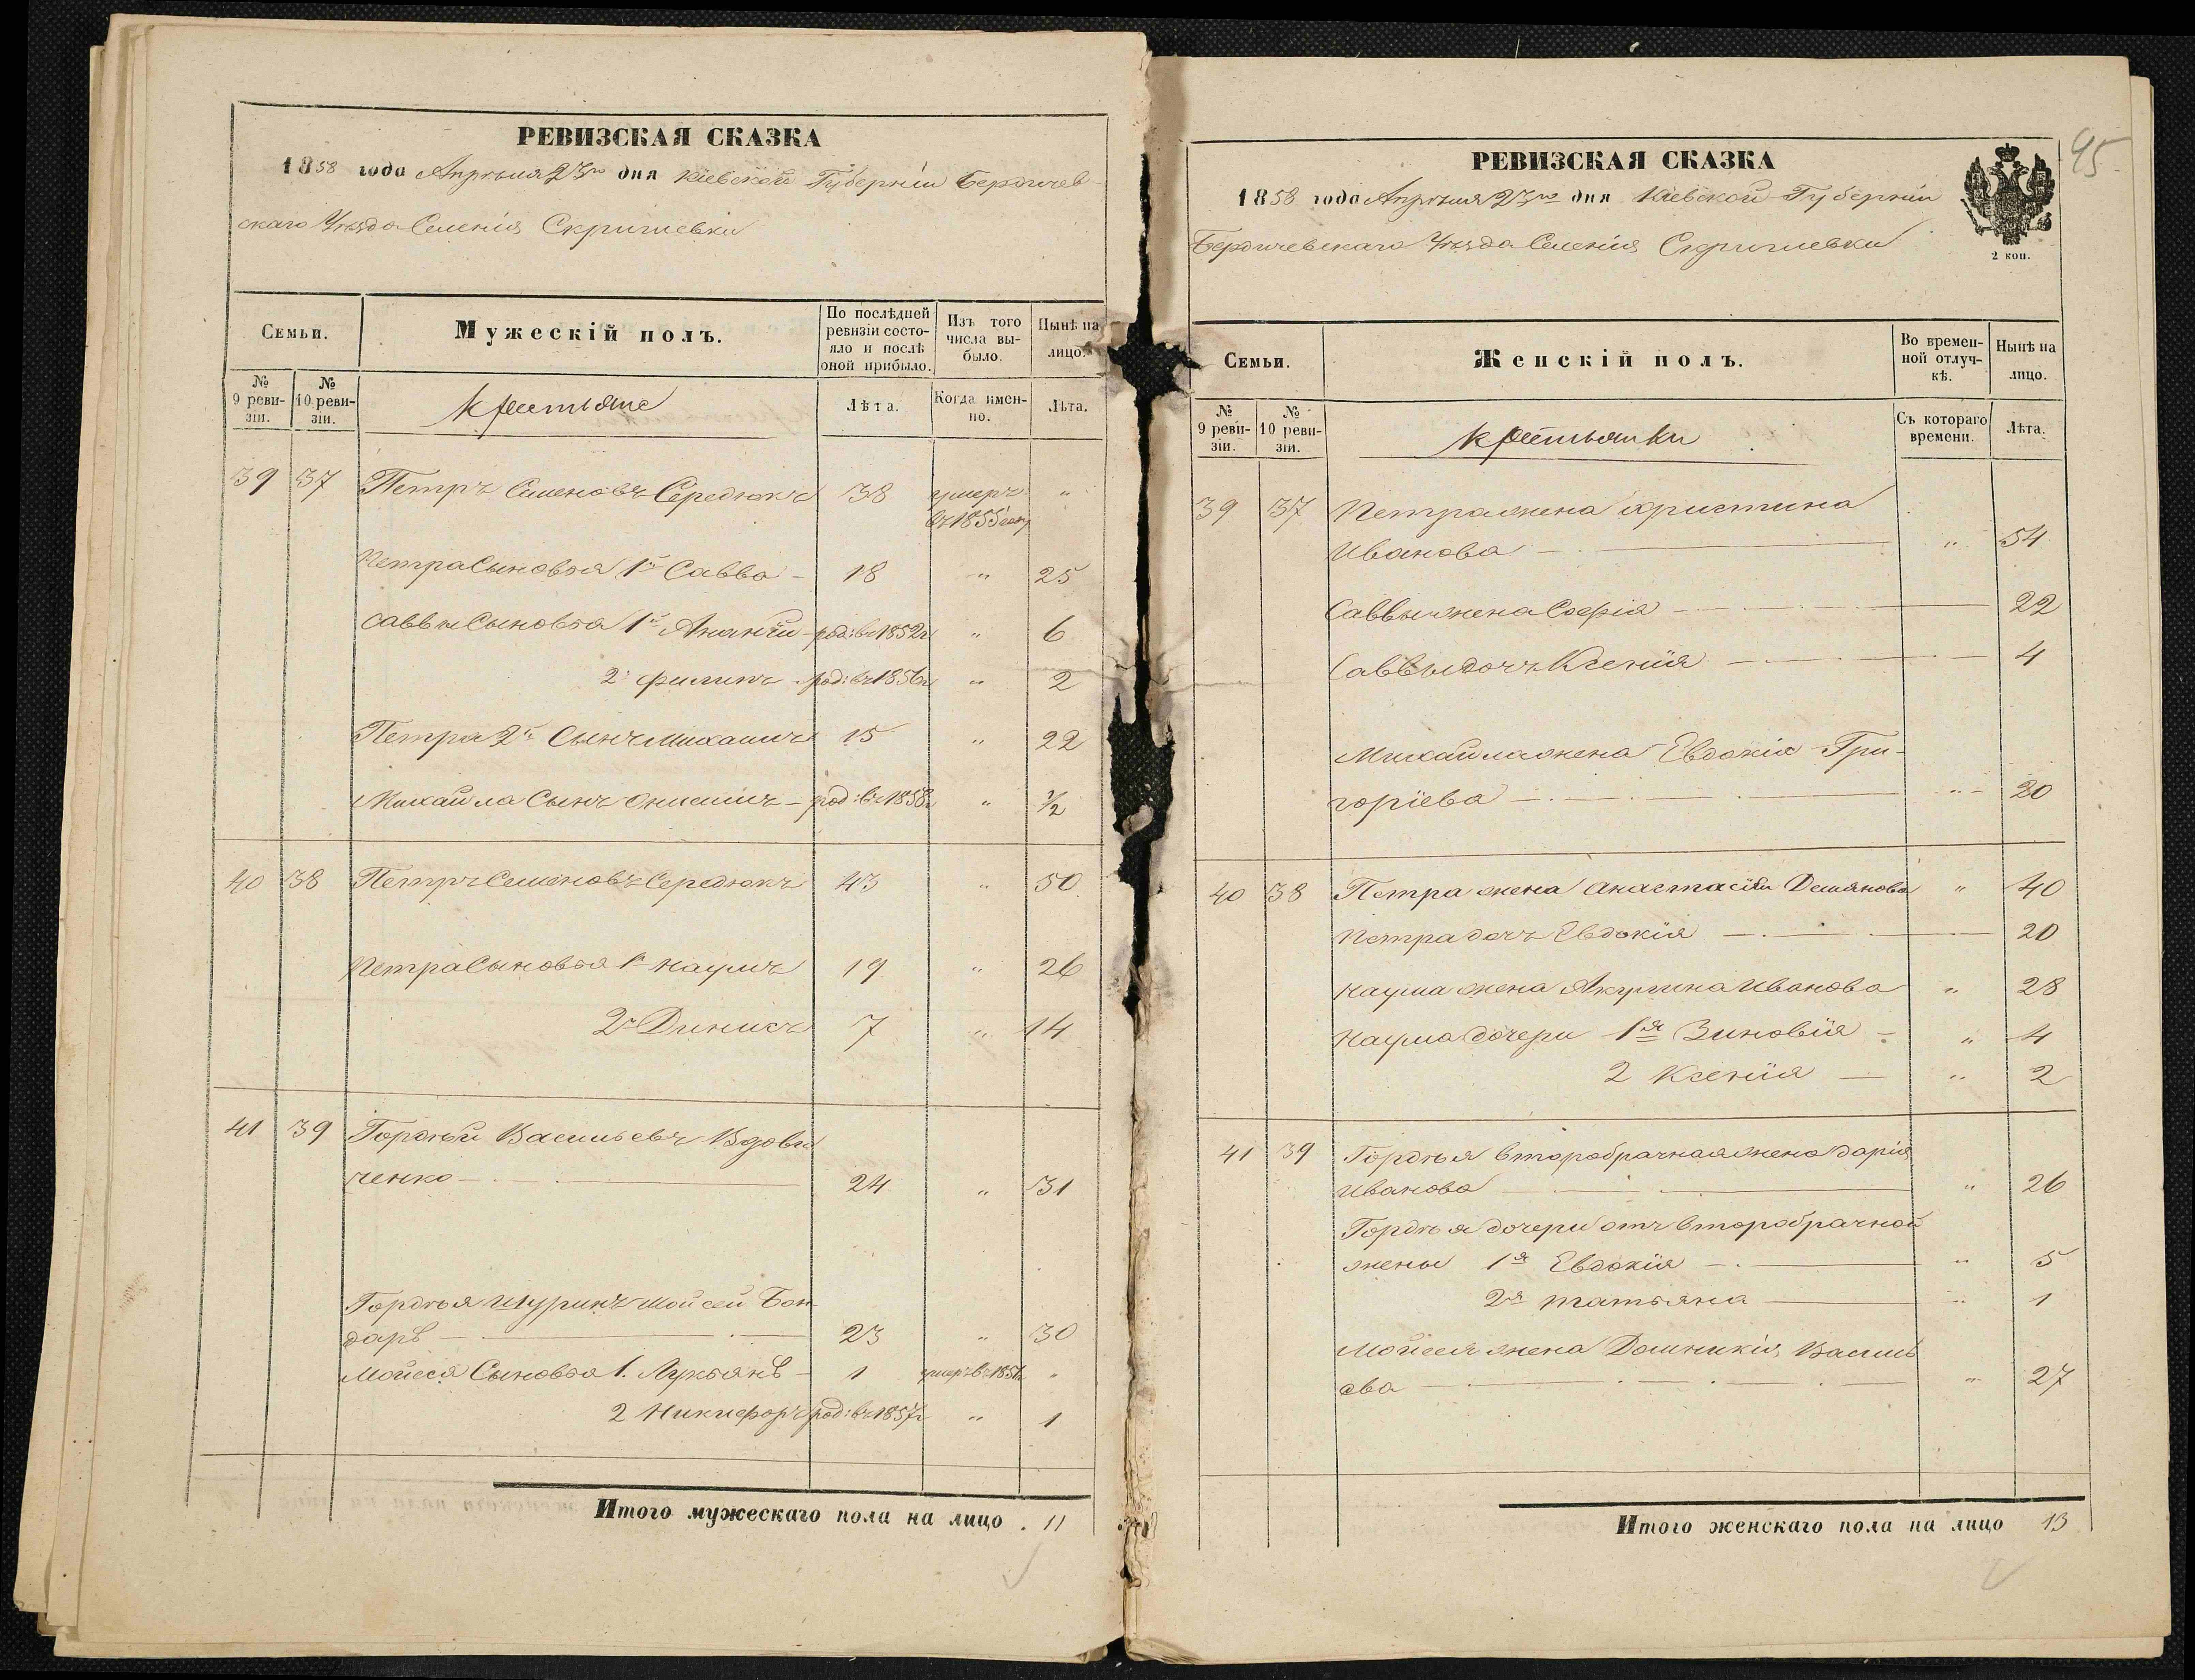 РЕВИЗСКАЯ СКАЗКА
1858 года Апрѣля 23го дня Кіевской Губерніи Бердичев-
скаго Уѣзда Селенія
Семьи.
Мужескій полъ.
По послѣдней ревизіи состо-яло и послѣ оной прибыло.
Изъ того числа вы-было.
Нынѣ на лицо.
№ 9 реви-зіи.
№ 10 реви-зіи.
Крестьяне
Лѣта.
Когда имен-но.
Лѣта.
39 37 Петръ Семеновъ Середюкъ 38 умеръ "
въ 1855 году
Петра Сыновья 1й Савва - 18 " 25
Саввы Сыновья 1й Ананій - род: въ 1852г " 6
2й Филипъ род: въ 1856г " 2
Петра 2й Сынъ Михаилъ 15 " 22
Михайла Сынъ Онисимъ - род: въ 1858г " ½
40 38 Петръ Семеновъ Середюкъ 43 " 50
Петра Сыновья 1й Наумъ 19 " 26
2й Динисъ 7 " 14
41 39 Гордѣй Васильевъ Вдови
ченко - 24 " 31
Гордѣя Шуринъ Мойсей Бон
дарь - 23 " 30
Мойсея Сыновья 1. Лукьянъ - 1 умеръ въ 1856г "
2 Никифоръ род: въ 1857г " 1
Итого мужескаго пола на лицо . 11
95
РЕВИЗСКАЯ СКАЗКА
1858 года Апрѣля 23го дня Кіевской Губерніи
Бердичевскаго Уѣзда Селенія
2 коп.
Семьи.
Женскій полъ.
Во времен-ной отлуч-кѣ.
Нынѣ на лицо.
№ 9 реви-зіи.
№ 10 реви-зіи.
Крестьянки
Съ котораго времени.
Лѣта.
39 37 Петра жена Христина
Иванова - " 54
Саввы жена Софія - 22
Саввы дочь Ксенія - 4
Михайла жена Евдокія Гри-
горіева - " 20
40 38 Петра жена Анастасія Демянова " 40
Петра дочь Евдокія - 20
Наума жена Акулина Иванова " 28
Наума дочери 1я Зиновія - " 4
2 Ксенія - " 2
41 39 Гордѣя второбрачная жена Дарія
Иванова - " 26
Гордѣя дочери отъ второбрачной
жены 1я Евдокія - " 5
2я Татьяна - " 1
Мойсея жена Домникія Василь
ева - " 27
Итого женскаго пола на лицо 13